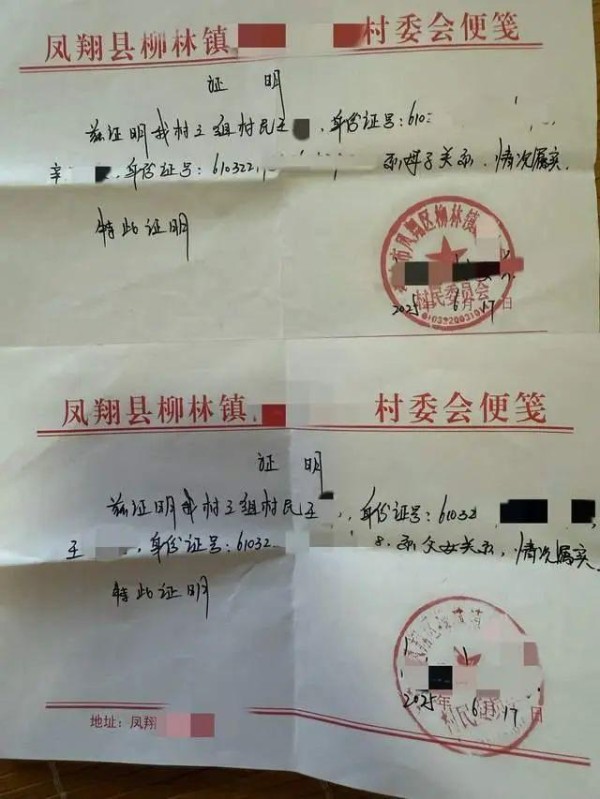 凤翔县柳林镇 村委会便笺
证 明
兹证明我村三组村民王 ,身份证号:610
辛 ,身份证号:610322 系母子关系,情况属实
特此证明
市凤翔区柳林镇
村民委员会
2025年6月17日
凤翔县柳林镇 村委会便笺
证 明
兹证明我村三组村民王 ,身份证号:61032
王 ,身份证号:61032 8.系父女关系,情况属实
特此证明
2025年6月17日
地址:凤翔